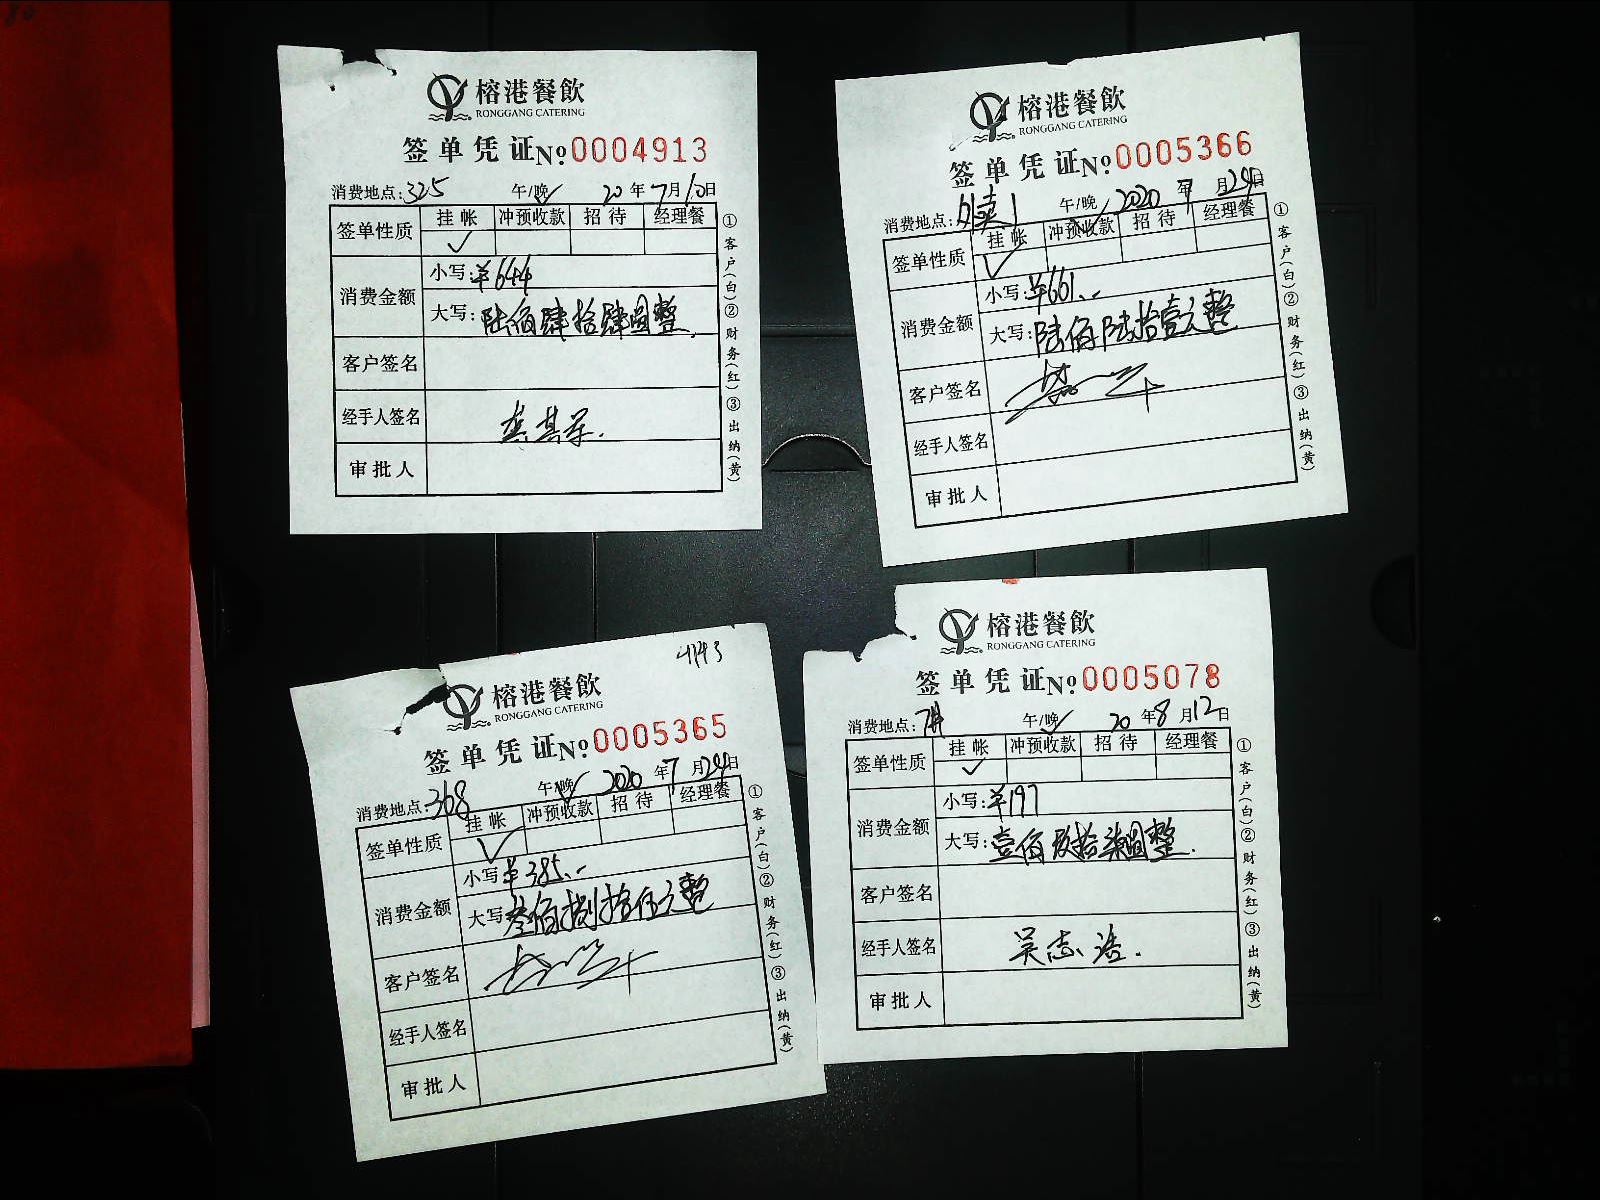 榕港餐飲
RONGGANG CATERING
签单凭证№0004913
消费地点:325 午/晚✓ 20年7月10日
签单性质 挂帐 冲预收款 招待 经理餐
✓
消费金额 小写:¥644
大写:陆佰肆拾肆圆整.
客户签名
经手人签名
审批人
①客户(白)②财务(红)③出纳(黄)
榕港餐飲
RONGGANG CATERING
签单凭证№0005366
消费地点: 午/晚✓ 2020年7月24日
签单性质 挂帐 冲预收款 招待 经理餐
✓
消费金额 小写:¥661.--
大写:陆佰陆拾壹元整
客户签名
经手人签名
审批人
①客户(白)②财务(红)③出纳(黄)
榕港餐飲
RONGGANG CATERING
签单凭证№0005365
消费地点:368 午/晚✓ 2020年7月24日
签单性质 挂帐 冲预收款 招待 经理餐
✓
消费金额 小写:¥385.--
大写:叁佰捌拾伍元整
客户签名
经手人签名
审批人
①客户(白)②财务(红)③出纳(黄)
榕港餐飲
RONGGANG CATERING
签单凭证№0005078
消费地点: 午/晚✓ 20年8月12日
签单性质 挂帐 冲预收款 招待 经理餐
✓
消费金额 小写:¥197
大写:壹佰玖拾柒圆整.
客户签名
经手人签名 吴志浩.
审批人
①客户(白)②财务(红)③出纳(黄)